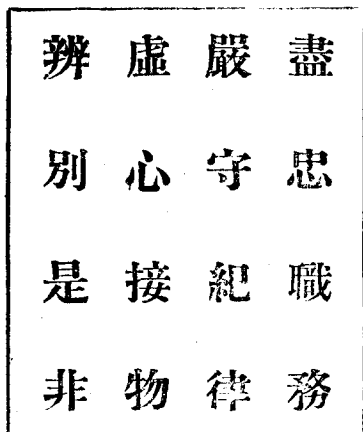 盡忠職務
嚴守紀律
虛心接物
辨別是非